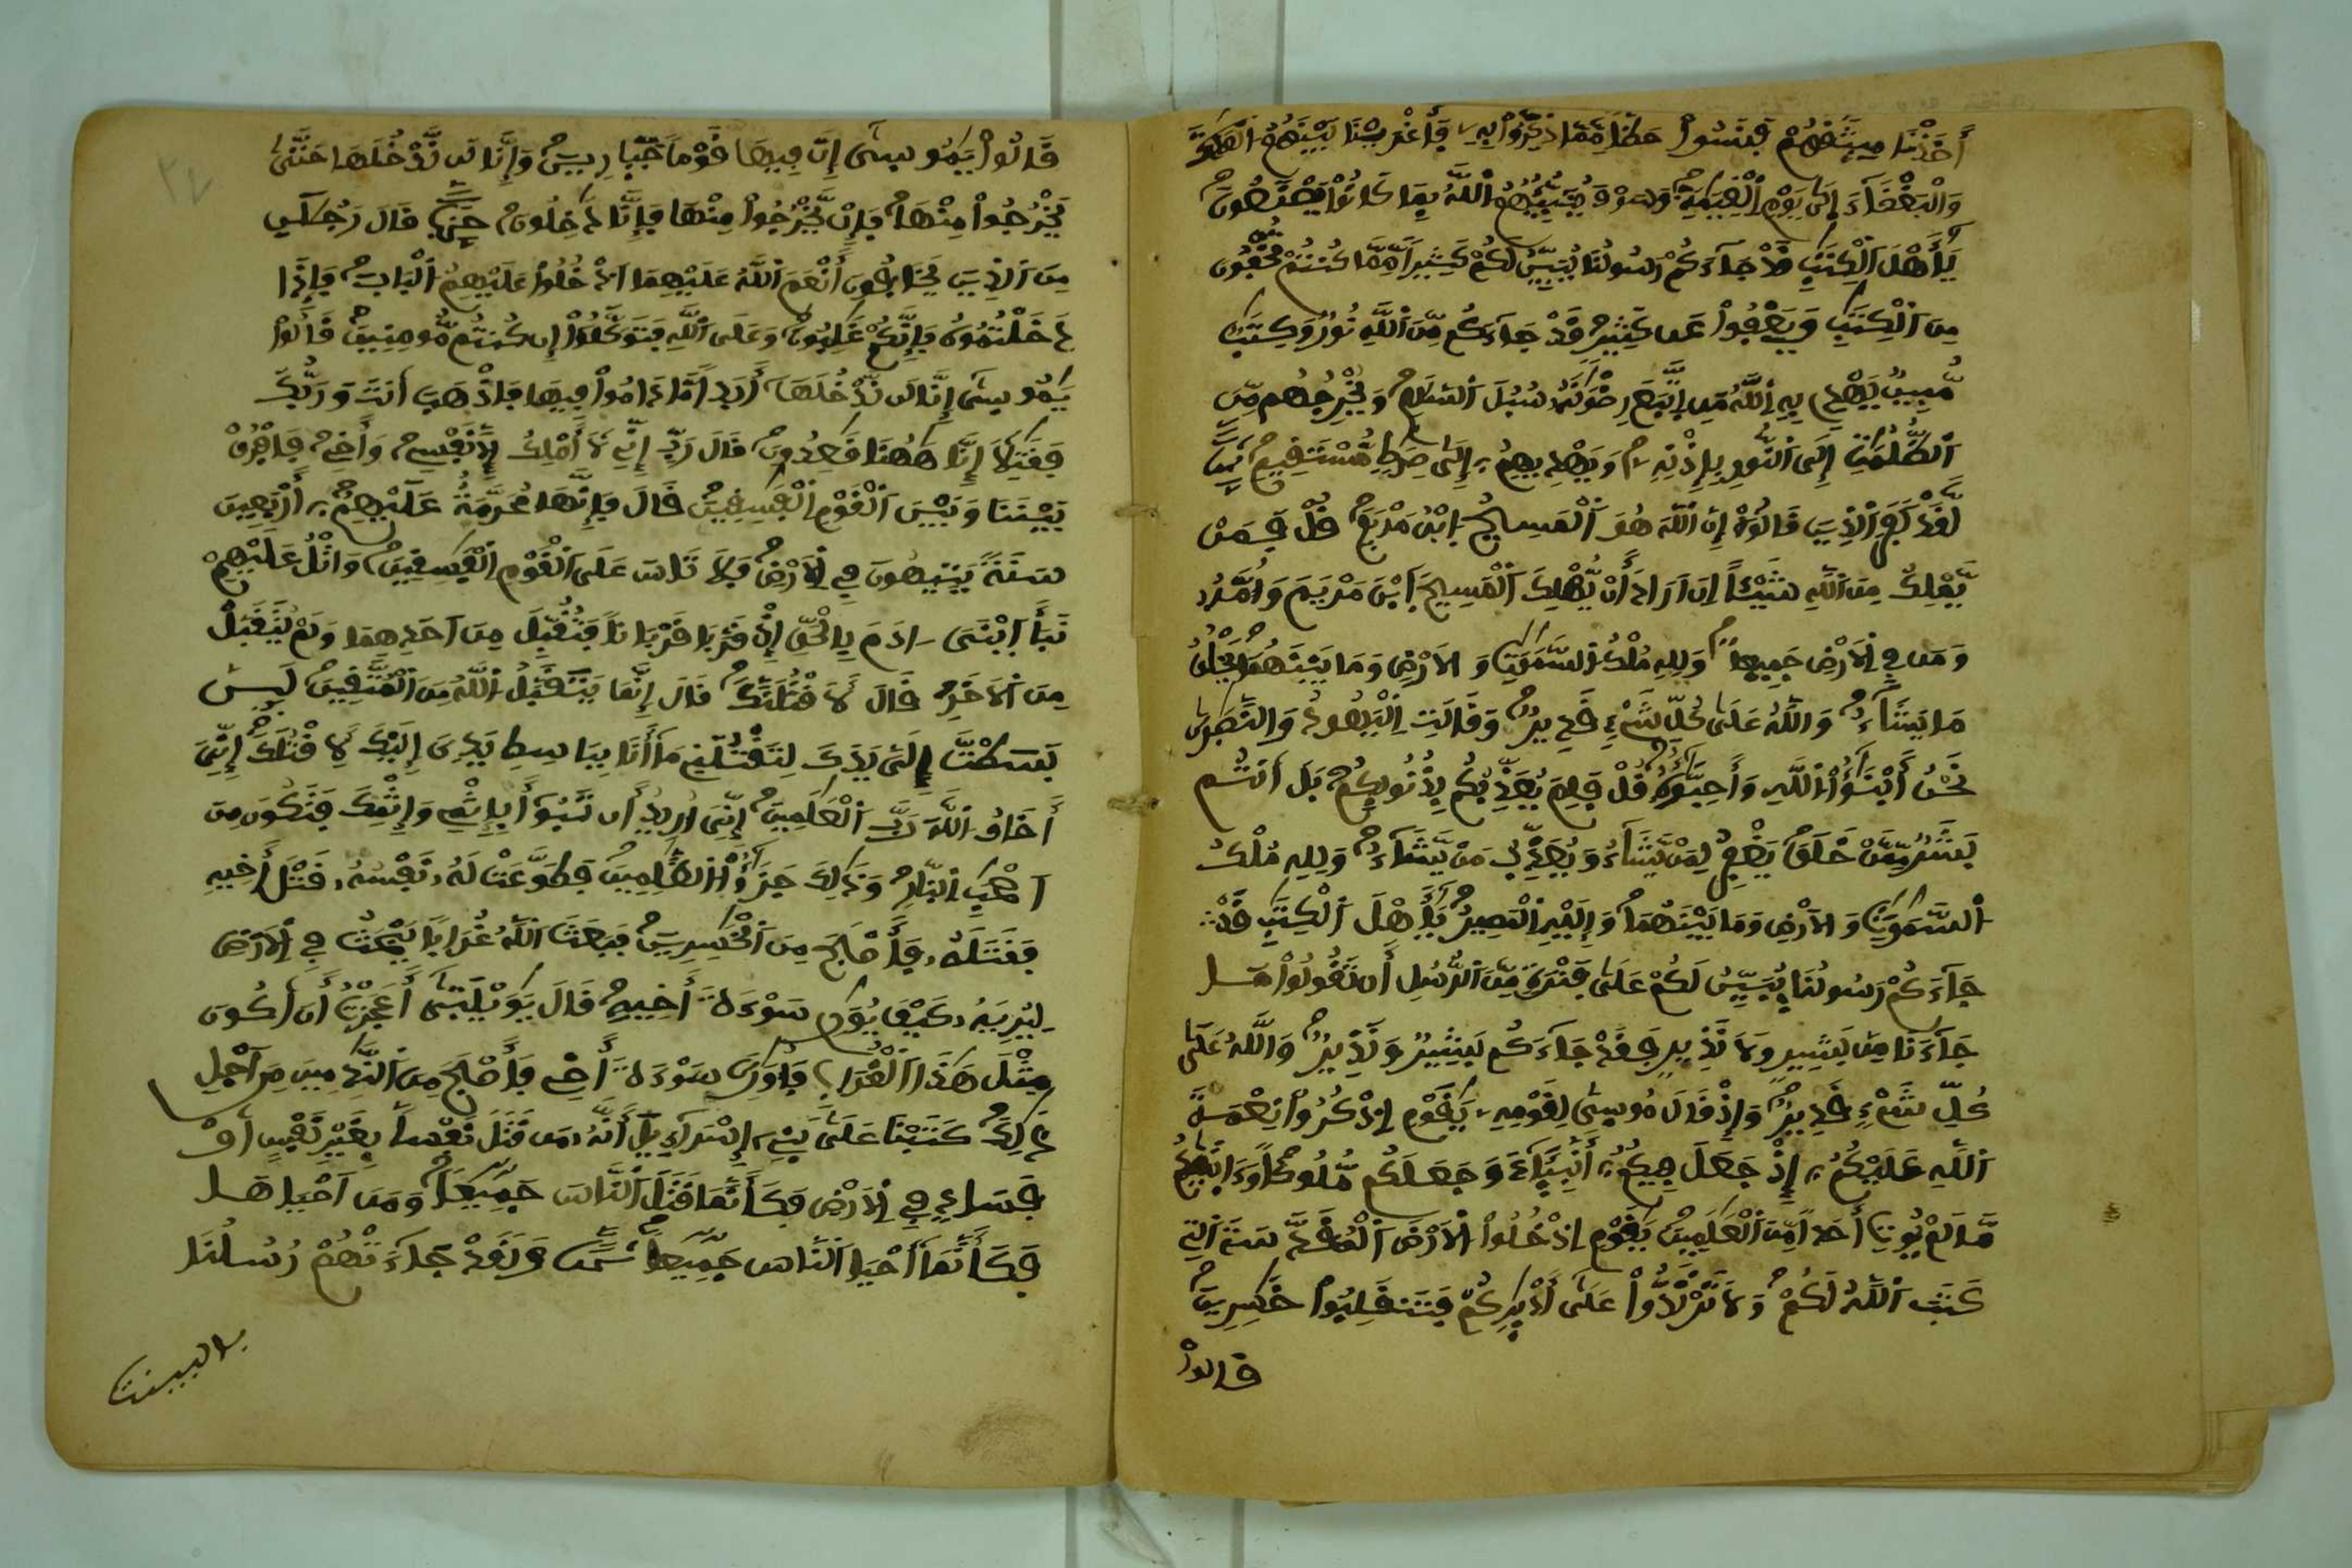 أَخَذْنَا مِيثَٰقَهُمْ فَنَسُواْ حَظّاً مِّمَّا ذُكِّرُواْ بِهِۦ فَأَغْرَيْنَا بَيْنَهُمُ اُلْعَدَاوَةَ
وَالْبَغْضَآءَ إِلَىٰ يَوْمِ اِلْقِيَٰمَةِ وَسَوْفَ يُنَبِّئُهُمُ اُللَّهُ بِمَا كَانُواْ يَصْنَعُونَ
يَٰٓأَهْلَ اَلْكِتَٰبِ قَدْ جَآءَكُمْ رَسُولُنَا يُبَيِّنُ لَكُمْ كَثِيراً مِّمَّا كُنتُمْ تُخْفُونَ
مِنَ اَلْكِتَٰبِ وَيَعْفُواْ عَن كَثِيرٍ قَدْ جَآءَكُم مِّنَ اَللَّهِ نُورٌ وَكِتَٰبٌ
مُّبِينٌ يَهْدِي بِهِ اِللَّهُ مَنِ اِتَّبَعَ رِضْوَٰنَهُۥ سُبُلَ اَلسَّلَٰمِ وَيُخْرِجُهُم مِّنَ
اَلظُّلُمَٰتِ إِلَى اَلنُّورِ بِإِذْنِهِۦ وَيَهْدِيهِمُۥٓ إِلَىٰ صِرَٰطٍ مُّسْتَقِيمٍ
لَّقَدْ كَفَرَ اَلذِينَ قَالُوٓاْ إِنَّ اَللَّهَ هُوَ اَلْمَسِيحُ اُبْنُ مَرْيَمَ قُلْ فَمَنْ
يَّمْلِكُ مِنَ اَللَّهِ شَيْـٔاً اِنَ اَرَادَ أَنْ يُّهْلِكَ اَلْمَسِيحَ اَبْنَ مَرْيَمَ وَأُمَّهُۥ
وَمَن فِي اِلَارْضِ جَمِيعاً وَلِلهِ مُلْكُ اُلسَّمَٰوَٰتِ وَالَارْضِ وَمَا بَيْنَهُمَا يَخْلُقُ
مَا يَشَآءُ وَاللَّهُ عَلَىٰ كُلِّ شَيْءٍ قَدِيرٌ وَقَالَتِ اِلْيَهُودُ وَالنَّصَٰرَىٰ
نَحْنُ أَبْنَٰٓؤُاْ اُللَّهِ وَأَحِبَّٰٓؤُهُ قُلْ فَلِمَ يُعَذِّبُكُم بِذُنُوبِكُم بَلَ اَنتُم
بَشَرٌ مِّمَّنْ خَلَقَ يَغْفِرُ لِمَنْ يَّشَآءُ وَيُعَذِّبُ مَنْ يَّشَآءُ وَلِلهِ مُلْكُ
اُلسَّمَٰوَٰتِ وَالَارْضِ وَمَا بَيْنَهُمَا وَإِلَيْهِ اِلْمَصِيرُ يَٰٓأَهْلَ اَلْكِتَٰبِ قَدْ
جَآءَكُمْ رَسُولُنَا يُبَيِّنُ لَكُمْ عَلَىٰ فَتْرَةٍ مِّنَ اَلرُّسُلِ أَن تَقُولُواْ مَا
جَآءَنَا مِنۢ بَشِيرٍ وَلَا نَذِيرٍ فَقَدْ جَآءَكُم بَشِيرٌ وَنَذِيرٌ وَاللَّهُ عَلَىٰ
كُلِّ شَيْءٍ قَدِيرٌ وَإِذْ قَالَ مُوسَىٰ لِقَوْمِهِۦ يَٰقَوْمِ اِذْكُرُواْ نِعْمَةَ
اَللَّهِ عَلَيْكُمُۥٓ إِذْ جَعَلَ فِيكُمُۥٓ أَنۢبِيَآءَ وَجَعَلَكُم مُّلُوكاً وَءَاتَيٰكُم
مَّا لَمْ يُوتِ أَحَداً مِّنَ اَلْعَٰلَمِينَ يَٰقَوْمِ اِدْخُلُواْ اُلَارْضَ اَلْمُقَدَّسَةَ اَلتِي
كَتَبَ اَللَّهُ لَكُمْ وَلَا تَرْتَدُّواْ عَلَىٰٓ أَدْبَٰرِكُمْ فَتَنقَلِبُواْ خَٰسِرِينَ
قالوا
٣٤
قَالُواْ يَٰمُوسَىٰٓ إِنَّ فِيهَا قَوْماً جَبَّارِينَ وَإِنَّا لَن نَّدْخُلَهَا حَتَّىٰ
يَخْرُجُواْ مِنْهَا فَإِنْ يَّخْرُجُواْ مِنْهَا فَإِنَّا دَٰخِلُونَ قَالَ رَجُلَٰنِ
مِنَ اَلذِينَ يَخَافُونَ أَنْعَمَ اَللَّهُ عَلَيْهِمَا اَدْخُلُواْ عَلَيْهِمُ اُلْبَابَ فَإِذَا
دَخَلْتُمُوهُ فَإِنَّكُمْ غَٰلِبُونَ وَعَلَى اَللَّهِ فَتَوَكَّلُوٓاْ إِن كُنتُم مُّومِنِينَ قَالُواْ
يَٰمُوسَىٰٓ إِنَّا لَن نَّدْخُلَهَآ أَبَداً مَّا دَامُواْ فِيهَا فَاذْهَبَ اَنتَ وَرَبُّكَ
فَقَٰتِلَآ إِنَّا هَٰهُنَا قَٰعِدُونَ قَالَ رَبِّ إِنِّي لَآ أَمْلِكُ إِلَّا نَفْسِي وَأَخِي فَافْرُقْ
بَيْنَنَا وَبَيْنَ اَلْقَوْمِ اِلْفَٰسِقِينَ قَالَ فَإِنَّهَا مُحَرَّمَةٌ عَلَيْهِمُۥٓ أَرْبَعِينَ
سَنَةً يَتِيهُونَ فِي اِلَارْضِ فَلَا تَاسَ عَلَى اَلْقَوْمِ اِلْفَٰسِقِينَ وَاتْلُ عَلَيْهِمْ
نَبَأَ اَبْنَيَ ءَادَمَ بِالْحَقِّ إِذْ قَرَّبَا قُرْبَاناً فَتُقُبِّلَ مِنَ اَحَدِهِمَا وَلَمْ يُتَقَبَّلْ
مِنَ اَلَاخَرِ قَالَ لَأَقْتُلَنَّكَ قَالَ إِنَّمَا يَتَقَبَّلُ اُللَّهُ مِنَ اَلْمُتَّقِينَ لَئِنۢ
بَسَطتَ إِلَيَّ يَدَكَ لِتَقْتُلَنِي مَآ أَنَا بِبَاسِطٍ يَدِيَ إِلَيْكَ لِأَقْتُلَكَ إِنِّيَ
أَخَافُ اُللَّهَ رَبَّ اَلْعَٰلَمِينَ إِنِّيَ أُرِيدُ أَن تَبُوٓأَ بِإِثْمِي وَإِثْمِكَ فَتَكُونَ مِنَ
اَصْحَٰبِ اِلنَّارِ وَذَٰلِكَ جَزَٰٓؤُاْ اُلظَّٰلِمِينَ فَطَوَّعَتْ لَهُۥ نَفْسُهُۥ قَتْلَ أَخِيهِ
فَقَتَلَهُۥ فَأَصْبَحَ مِنَ اَلْخَٰسِرِينَ فَبَعَثَ اَللَّهُ غُرَاباً يَبْحَثُ فِي اِلَارْضِ
لِيُرِيَهُۥ كَيْفَ يُوَٰرِي سَوْءَةَ أَخِيهِ قَالَ يَٰوَيْلَتَىٰٓ أَعَجَزْتُ أَنَ اَكُونَ
مِثْلَ هَٰذَا اَلْغُرَابِ فَأُوَٰرِيَ سَوْءَةَ أَخِي فَأَصْبَحَ مِنَ اَلنَّٰدِمِينَ مِنَ اَجْلِ
ذَٰلِكَ كَتَبْنَا عَلَىٰ بَنِيٓ إِسْرَآءِيلَ أَنَّهُۥ مَن قَتَلَ نَفْساً بِغَيْرِ نَفْسٍ اَوْ
فَسَادٍ فِي اِلَارْضِ فَكَأَنَّمَا قَتَلَ اَلنَّاسَ جَمِيعاً وَمَنَ اَحْيَاهَا
فَكَأَنَّمَآ أَحْيَا اَلنَّاسَ جَمِيعاً وَلَقَدْ جَآءَتْهُمْ رُسُلُنَا
بالبينت